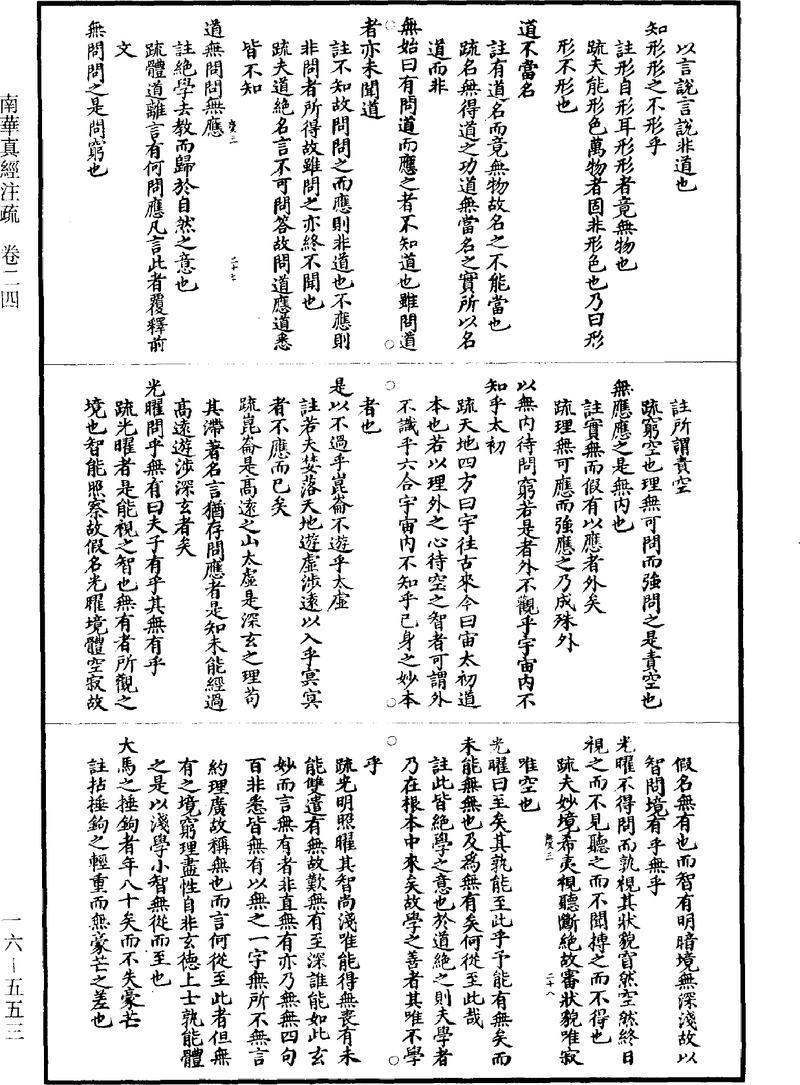 南華真經注疏　卷二四
以言說言說非道也
知形形之不形乎
註形自形耳形形者竟無物也
疏夫能形色萬物者固非形色也乃曰形
形不形也
道不當名
註有道名而竟無物故名之不能當也
疏名無得道之功道無當名之實所以名
道而非
無始曰有問道而應之者不知道也雖問道
者亦未聞道
註不知故問問之而應則非道也不應則
非問者所得故雖問之亦終不聞也
疏夫道絕名言不可問答故問道應道悉
皆不知
道無問問無應
註絕學去教而歸於自然之意也
疏體道離言有何問應凡言此者覆釋前
文
無問問之是問窮也
註所謂責空
疏窮空也理無可問而強問之是責空也
無應應之是無內也
註實無而假有以應者外矣
疏理無可應而強應之乃成殊外
以無內待問窮若是者外不觀乎宇宙內不
知乎太初
疏天地四方曰宇往古來今曰宙太初道
本也若以理外之心待空之智者可謂外
不識乎六合宇宙內不知乎己身之妙本
者也
是以不過乎崑崙不遊乎太虛
註若夫婪落天地遊虛涉遠以入乎冥冥
者不應而已矣
疏崑崙是高遠之山太虛是深玄之理苟
其滯著名言猶存問應者是知未能經過
高遠遊涉深玄者矣
光曜問乎無有曰夫子有乎其無有乎
疏光曜者是能視之智也無有者所觀之
境也智能照察故假名光曜境體空寂故
假名無有也而智有明暗境無深淺故以
智問境有乎無乎
光曜不得問而孰視其狀貌窅然空然終日
視之而不見聽之而不聞搏之而不得也
疏夫妙境希夷視聽斷絕故審狀貌唯寂
唯空也
光曜曰至矣其孰能至此乎予能有無矣而
未能無無也及為無有矣何從至此哉
註此皆絕學之意也於道絕之則夫學者
乃在根本中來矣故學之善者其唯不學
乎
疏光明照曜其智尚淺唯能得無喪有未
能雙遣有無故歎無有至深誰能如此玄
妙而言無有者非直無有亦乃無無四句
百非悉皆無有以無之一字無所不無言
約理廣故稱無也而言何從至此者但無
有之境窮理盡性自非玄德上士孰能體
之是以淺學小智無從而至也
大馬之捶鉤者年八十矣而不失豪芒
註拈捶鉤之輕重而無豪芒之差也
一六－五五三